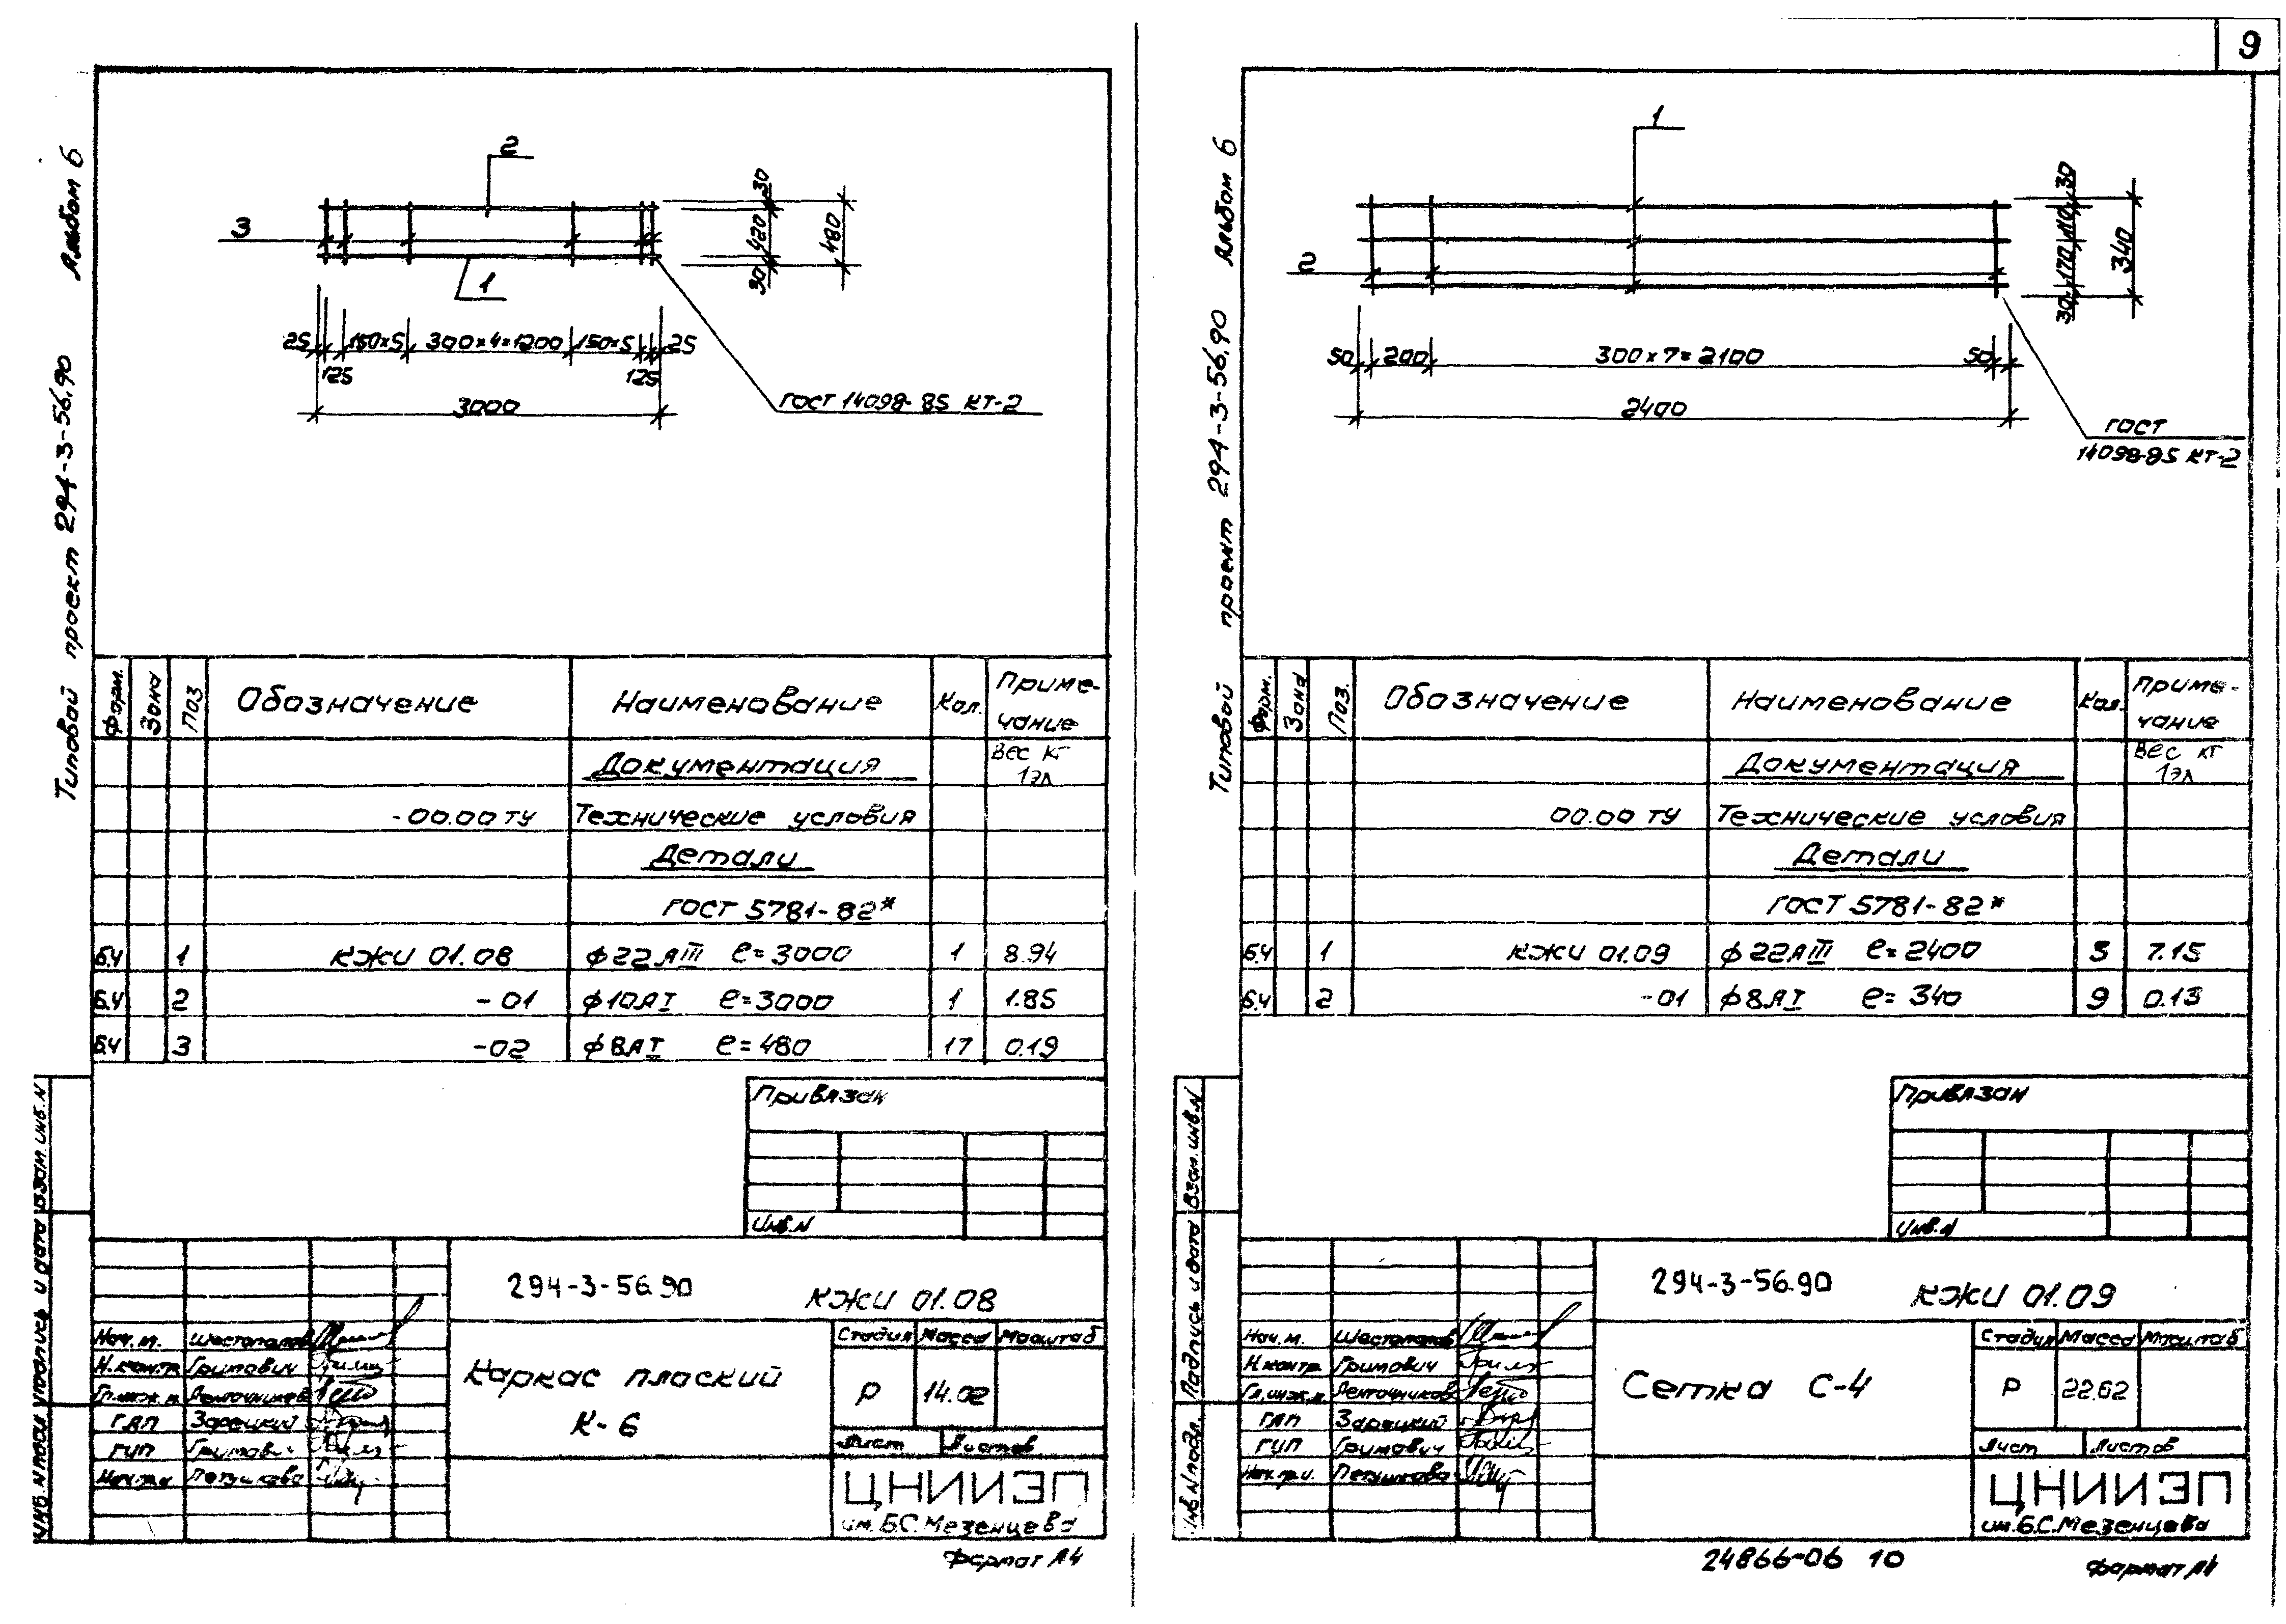 9
Альбом 6
Типовой проект 294-3-56.90
2
3
1
30
420
30
480
25
150×5
300×4=1200
150×5
25
125
125
3000
ГОСТ 14098-85 КТ-2
Форм.
Зона
Поз
Обозначение
Наименование
Кол.
Приме-
чание
Документация
Вес кг
1эл
-00.00 ТУ Технические условия
Детали
ГОСТ 5781-82*
Б.Ч 1 КЖИ 01.08 ф22АIII ℓ=3000 1 8.94
Б.Ч 2 -01 ф10АI ℓ=3000 1 1.85
Б.Ч 3 -02 ф8АI ℓ=480 17 0.19
Привязан
Инв.N
294-3-56.90 КЖИ 01.08
Нач.м. Шестопалов
Н.контр Гримович
Гл.инж.м. Ленточников
ГАП Зарецкий
ГИП Гримович
Петушкова
Каркас плоский
К-6
Стадия Масса Масштаб
Р 14.02
Лист Листов
ЦНИИЭП
им.Б.С.Мезенцева
Формат А4
Инв.N подл Подпись и дата Взам.инв.N
Альбом 6
Типовой проект 294-3-56.90
1
2
30
110
170
30
340
50
200
300×7=2100
50
2400
ГОСТ
14098-85 КТ-2
Форм.
Зона
Поз.
Обозначение
Наименование
Кол.
Приме-
чание
Документация
Вес кг
1эл
00.00 ТУ Технические условия
Детали
ГОСТ 5781-82*
Б.Ч 1 КЖИ 01.09 ф22АIII ℓ=2400 3 7.15
Б.Ч 2 -01 ф8АI ℓ=340 9 0.13
Привязан
Инв.N
294-3-56.90 КЖИ 01.09
Нач.м. Шестопалов
Н.контр Гримович
Гл.инж.м. Ленточников
ГАП Зарецкий
ГИП Гримович
Нач.гр.и. Петушкова
Сетка С-4
Стадия Масса Масштаб
Р 22.62
Лист Листов
ЦНИИЭП
им.Б.С.Мезенцева
Инв.N подл. Подпись и дата Взам.инв.N
24866-06 10
Формат А4